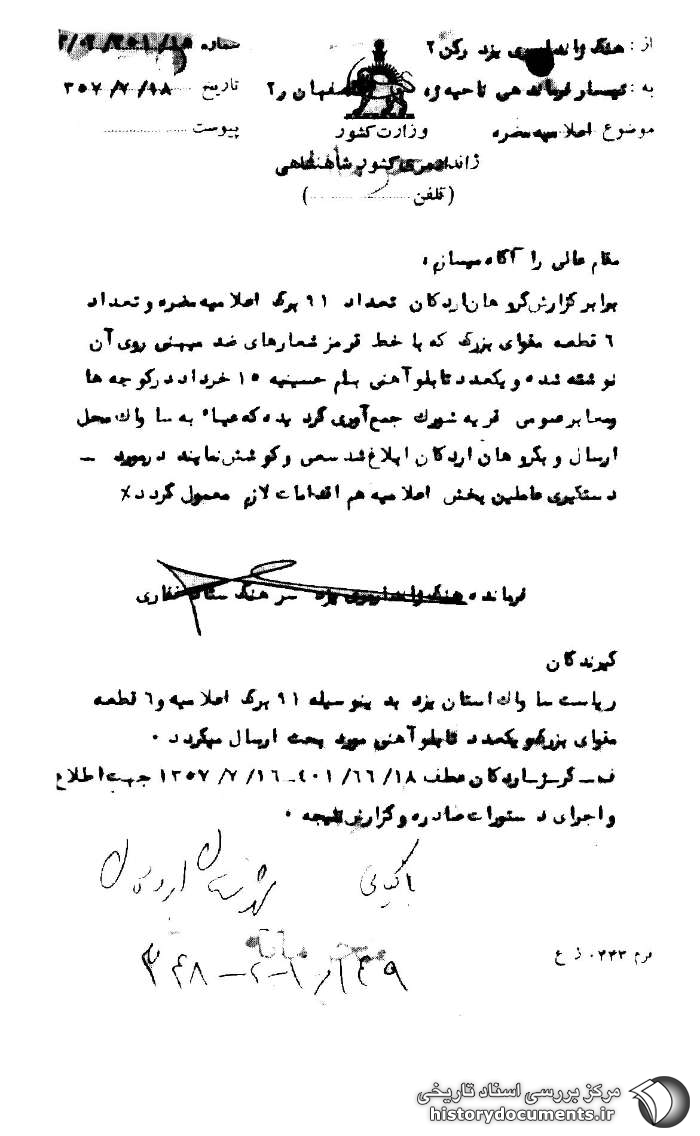 از : هنگ ژاندارمری یزد رکن ۲
به : تیمسار فرماندهی ناحیه ژ اصفهان ر۲
موضوع اعلامیه مضره
وزارت کشور
ژاندارمری کشور شاهنشاهی
(تلفن ............)
شماره
تاریخ ۳۵۷/۷/۱۸
پیوست
مقام عالی را آگاه میسازم :
برابر گزارش گروهان اردکان تعداد ۹۱ برگ اعلامیه مضره و تعداد
۶ قطعه مقوای بزرگ که با خط قرمز شعارهای ضد میهنی روی آن
نوشته شده و یکعدد تابلو آهنی بنام حسینیه ۱۵ خرداد در کوچه ها
ومعابر عمومی قریه شورک جمع آوری گردیده که عیناً به ساواک محل
ارسال و بگروهان اردکان ابلاغ شد سعی و کوشش نمایند درمورد ـ
دستگیری عاملین پخش اعلامیه هم اقدامات لازم معمول گردد٪
فرمانده هنگ ژاندارمری یزد سرهنگ ستاد غفاری
گیرندگان
ریاست ساواک استان یزد بدینوسیله ۹۱ برگ اعلامیه و ۶ قطعه
مقوای بزرگ و یکعدد تابلو آهنی مورد بحث ارسال میگردد .
ف ـ گر ژ ـ اردکان عطف ۱۸/ ۶۶/ ۴۰۱ـ ۱۶/ ۷/ ۱۳۵۷ جهت اطلاع
و اجرای دستورات صادره و گزارش نتیجه .
شهرستان اردکان
فرم ۰۴۴۳ ژ ع
مرکز بررسی اسناد تاریخی
historydocuments.ir